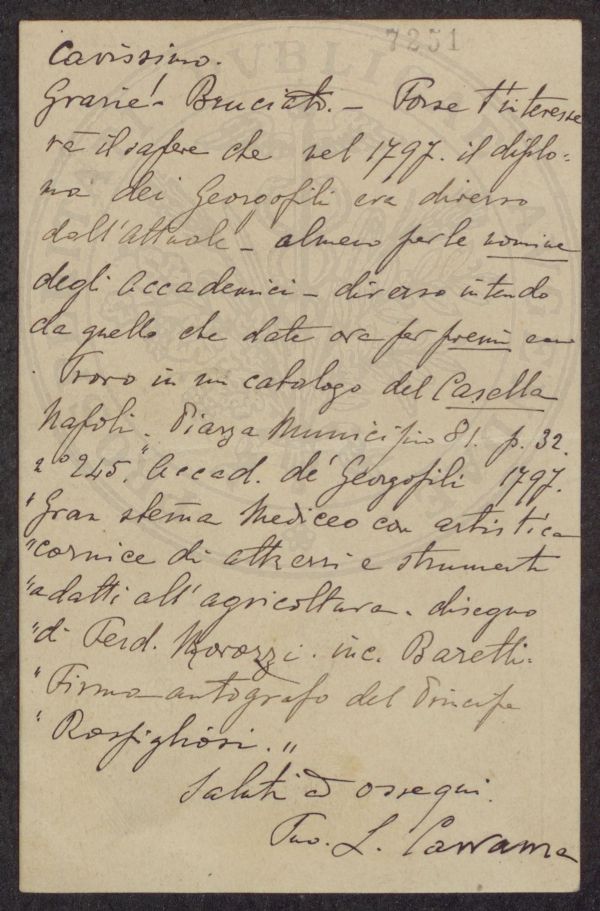 7251
Carissimo.
Grazie! - Bruciato. - Forse t'interesse
rà il sapere che nel 1797. il diplo=
ma dei Georgofili era diverso
dall'attuale - almeno per le nomine
degli Accademici - diverso intendo
da quello che date ora per premi
Trovo in un catalogo del Casella
Napoli. Piazza Municipio 81. p. 32.
n° 245. "Accad. de' Georgofili 1797.
"Gran stemma Mediceo con artistica
"cornice di attrezzi e strumenti
"adatti all'agricoltura. disegno
"di Ferd. Morozzi. inc. Baretti.
"Firma autografo del Principe
"Rospigliosi."
Saluti ed ossequi.
Tuo. L. Carrama